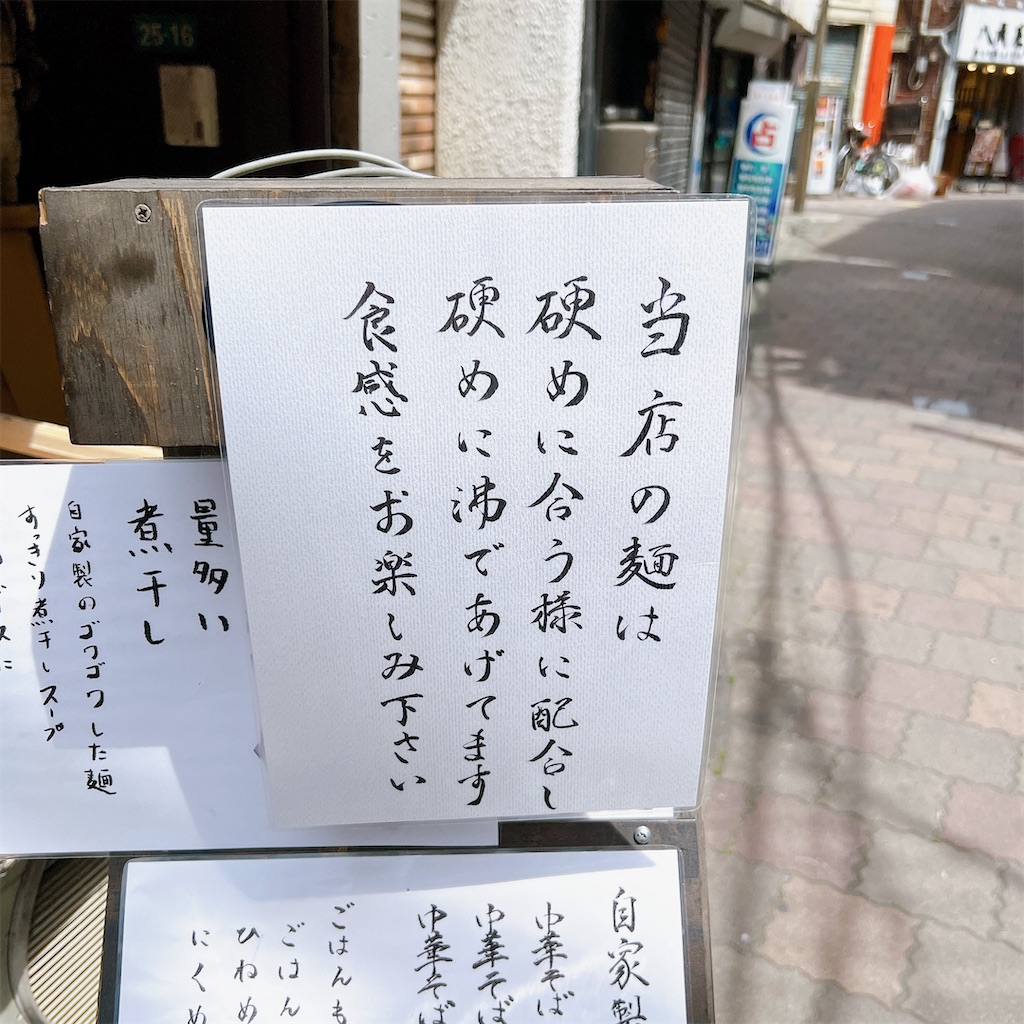 当店の麺は
硬めに合う様に配合し
硬めに沸であげてます
食感をお楽しみ下さい
量多い
煮干し
自家製のゴワゴワした麺
すっきり煮干しスープ
自家製
中華そば
中華そば
中華そば
ごはんも
ごはん
ひねめ
にくめ
25-16
占